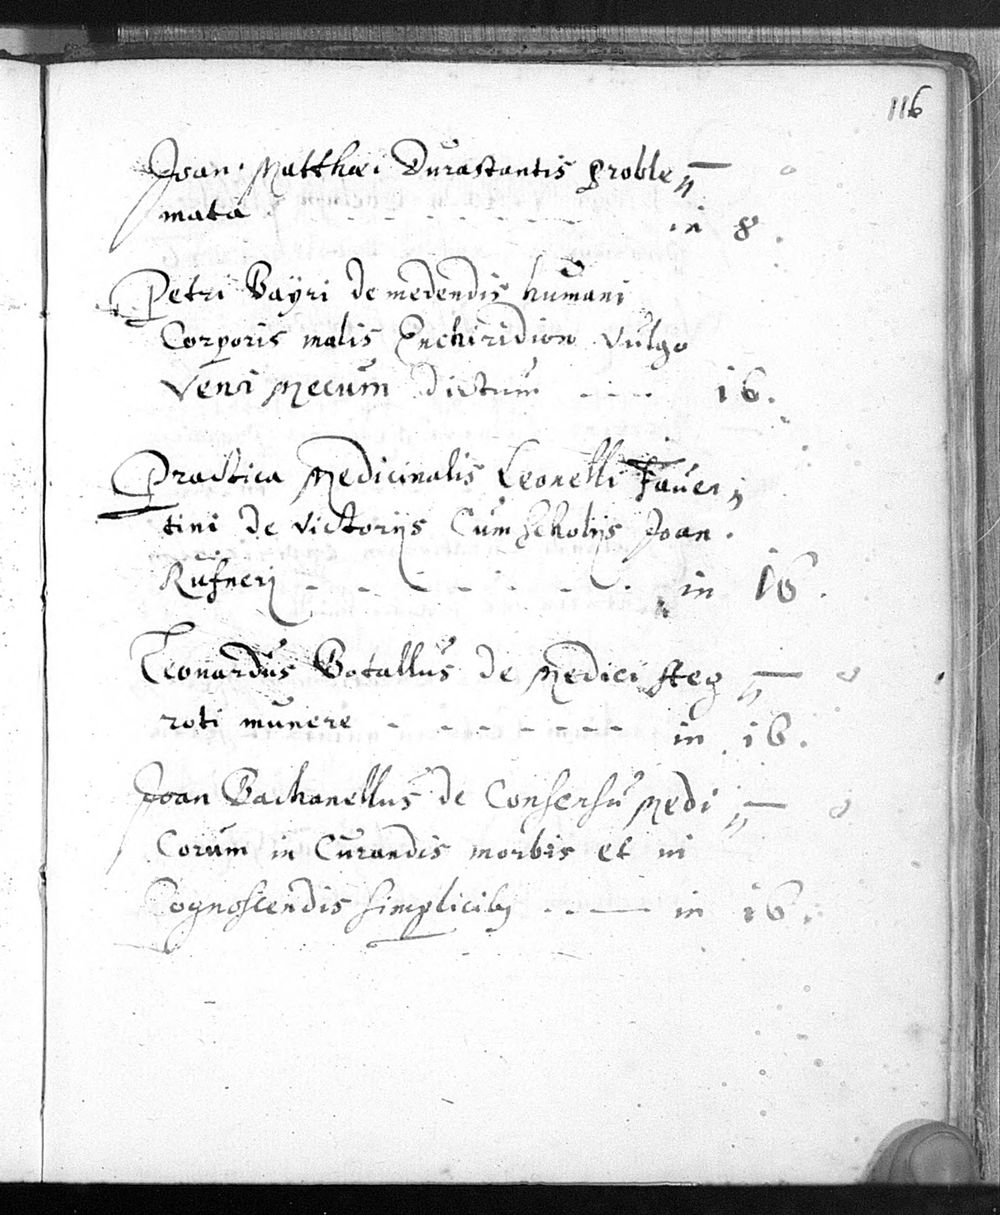 116
Joan. Matthæi Durastantis Proble„
mata - - - - - - - - in 8.
Petri Bayri de medendis humani
Corporis malis Enchiridion vulgo
Veni Mecum dictum - - - - 16.
Practica Medicinalis Leonelli Faven„
tini de victorijs Cum scholijs Joan.
Rufnerj - - - - - - - in 16.
Leonardus Botallus de Medici Aeg„
roti munere - - - - - - - in 16.
Joan Bachanellus de Consensu Medi„
Corum in Curandis morbis et in
Cognoscendis simplicibꝫ - - - in 16.